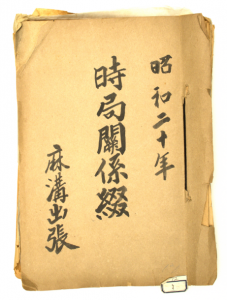 昭和二十年
時局關係綴
麻溝出張